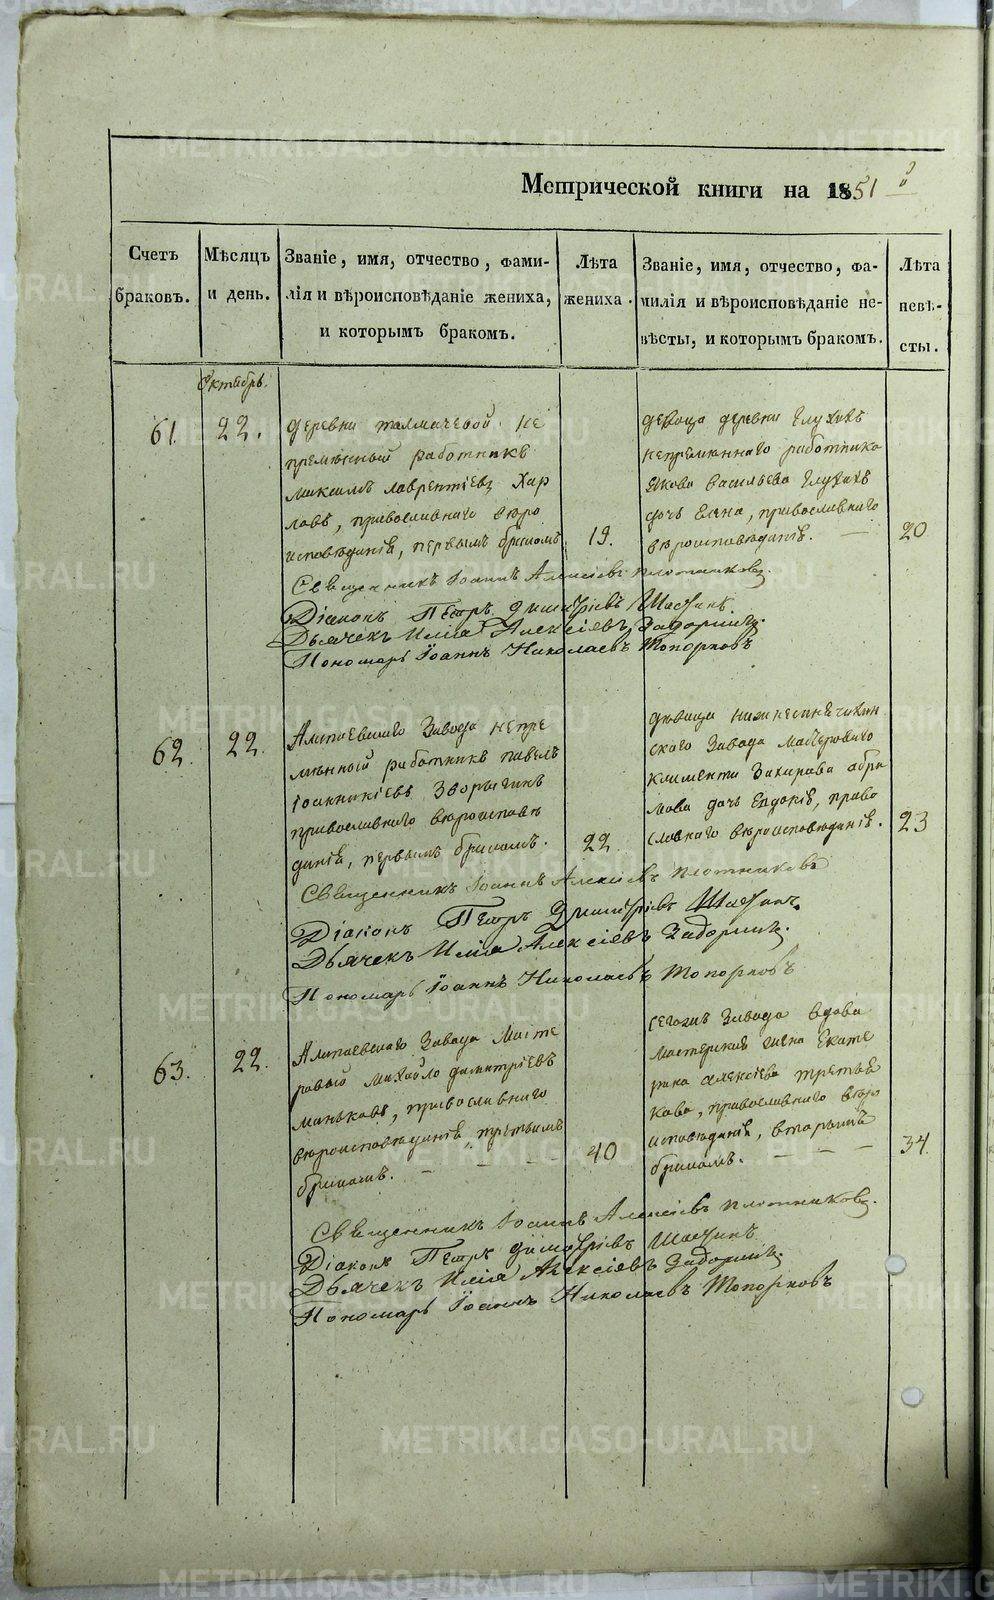 Метрической книги на 1851 й
Счетъ браковъ.
Мѣсяцъ и день.
Званіе, имя, отчество, фами-
лія и вѣроисповѣданіе жениха,
и которымъ бракомъ.
Лѣта жениха.
Званіе, имя, отчество, фа-
милія и вѣроисповѣданіе не-
вѣсты, и которымъ бракомъ.
Лѣта невѣ-
сты.
Октябрь.
61. 22.
деревни толмачевой не
премѣнный работникъ
Максимъ Лаврентіевъ Хар
ловъ, православнаго вѣро
исповѣданія, первымъ бракомъ
19.
девица деревни Глухихъ
непремѣннаго работника
Якова Васильева Глухихъ
дочь Елена, православнаго
вѣроисповѣданія. —
20
Священникъ Іоаннъ Алексіевъ Плотниковъ.
Діаконъ Петръ Димитріевъ
Дьячекъ Илія Алексіевъ Задоринъ.
Пономарь Іоаннъ Николаевъ Топорковъ
62. 22.
Алапаевскаго Завода непре
мѣнный работникъ павелъ
Іоанникіевъ Зворыгинъ
православнаго вѣроисповѣ
данія, первымъ бракомъ.
22.
дѣвица нижнесинячихин
скаго Завода Мастероваго
Климента Захарова абра
мова дочь Евдокія, право
славнаго вѣроисповѣданія.
23
Священникъ Іоаннъ Алексіевъ Плотниковъ
Діаконъ Петръ Димитріевъ
Дьячекъ Илія Алексіевъ Задоринъ.
Пономарь Іоаннъ Николаевъ Топорковъ
63. 22.
Алапаевскаго Завода Масте
ровый Михайло димитріевъ
маньковъ, православнаго
вѣроисповѣданія, третьимъ
бракомъ. — — —
40
сегожъ Завода вдова
Мастерская жена Екате
рина алексіева третья
кова, православнаго вѣро
исповѣданія, вторымъ
бракомъ. — — —
34.
Священникъ Іоаннъ Алексіевъ Плотниковъ.
Діаконъ Петръ Димитріевъ
Дьячекъ Илія Алексіевъ Задоринъ.
Пономарь Іоаннъ Николаевъ Топорковъ
METRIKI.GASO-URAL.RU